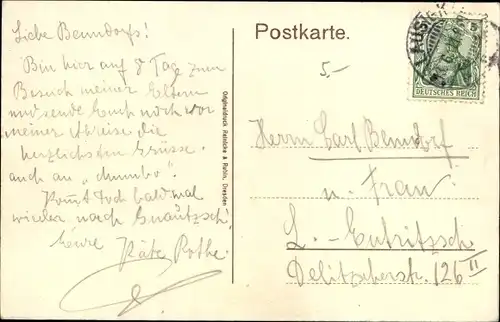 Liebe Benndorfs!
Bin hier auf 8 Tage zum
Besuch meiner Eltern
und sende Euch noch vor
meiner Abreise die
herzlichsten Grüsse,
auch an "Mumbo".
Kommt doch bald mal
wieder nach Gnautzsch!
Eure Käte Rothe.
Originaldruck Reinicke & Rubin, Dresden
Postkarte.
5.-
DEUTSCHES REICH
Herrn Carl Benndorf
u. Frau
L.-Eutritzsch
Delitzscherstr. 126 II